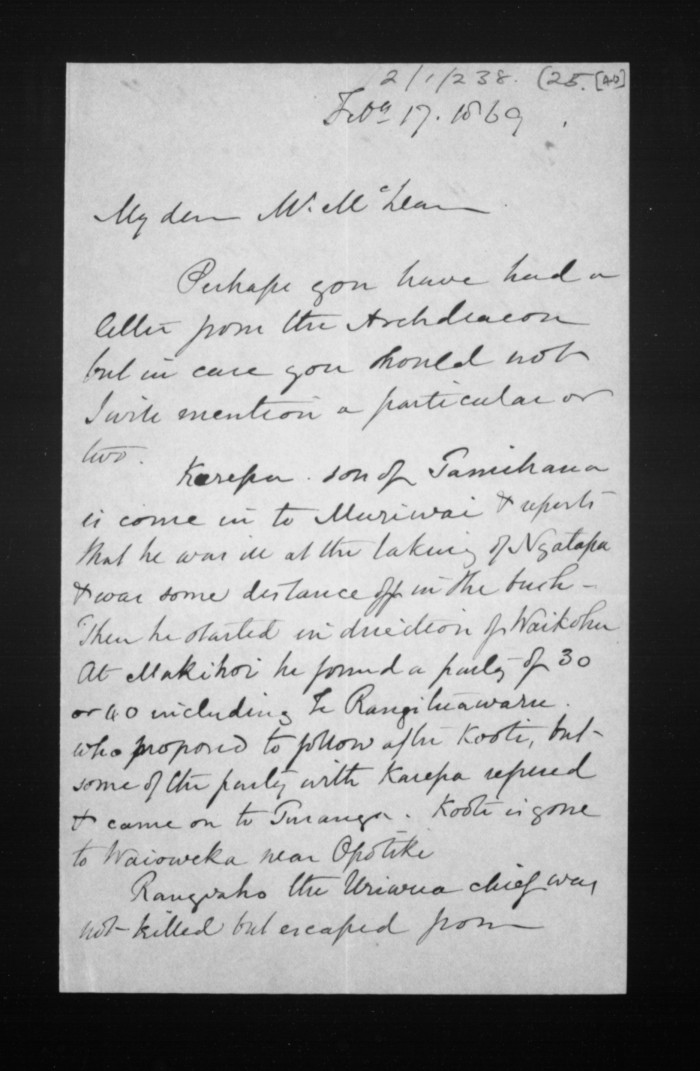 2/1/238. (25.
Feby 17. 1869.
My dear Mr. McLean
Perhaps you have had a
letter from the Archdeacon
but in case you should not
I will mention a particular or
two.
Karepa son of Tamihana
is come in to Muriwai & reports
that he was ill at the taking of Ngatapa
& was some distance off in the bush -
Then he started in direction of Waikohu
At Makihoi he found a party of 30
or 40 including Te Rangituawaru.
who proposed to follow after Kooti, but -
some of the party with Karepa refused
& came on to Turanga. Kooti is gone
to Waioweka near Opotiki
the Uriwera chief was
not killed but escaped from